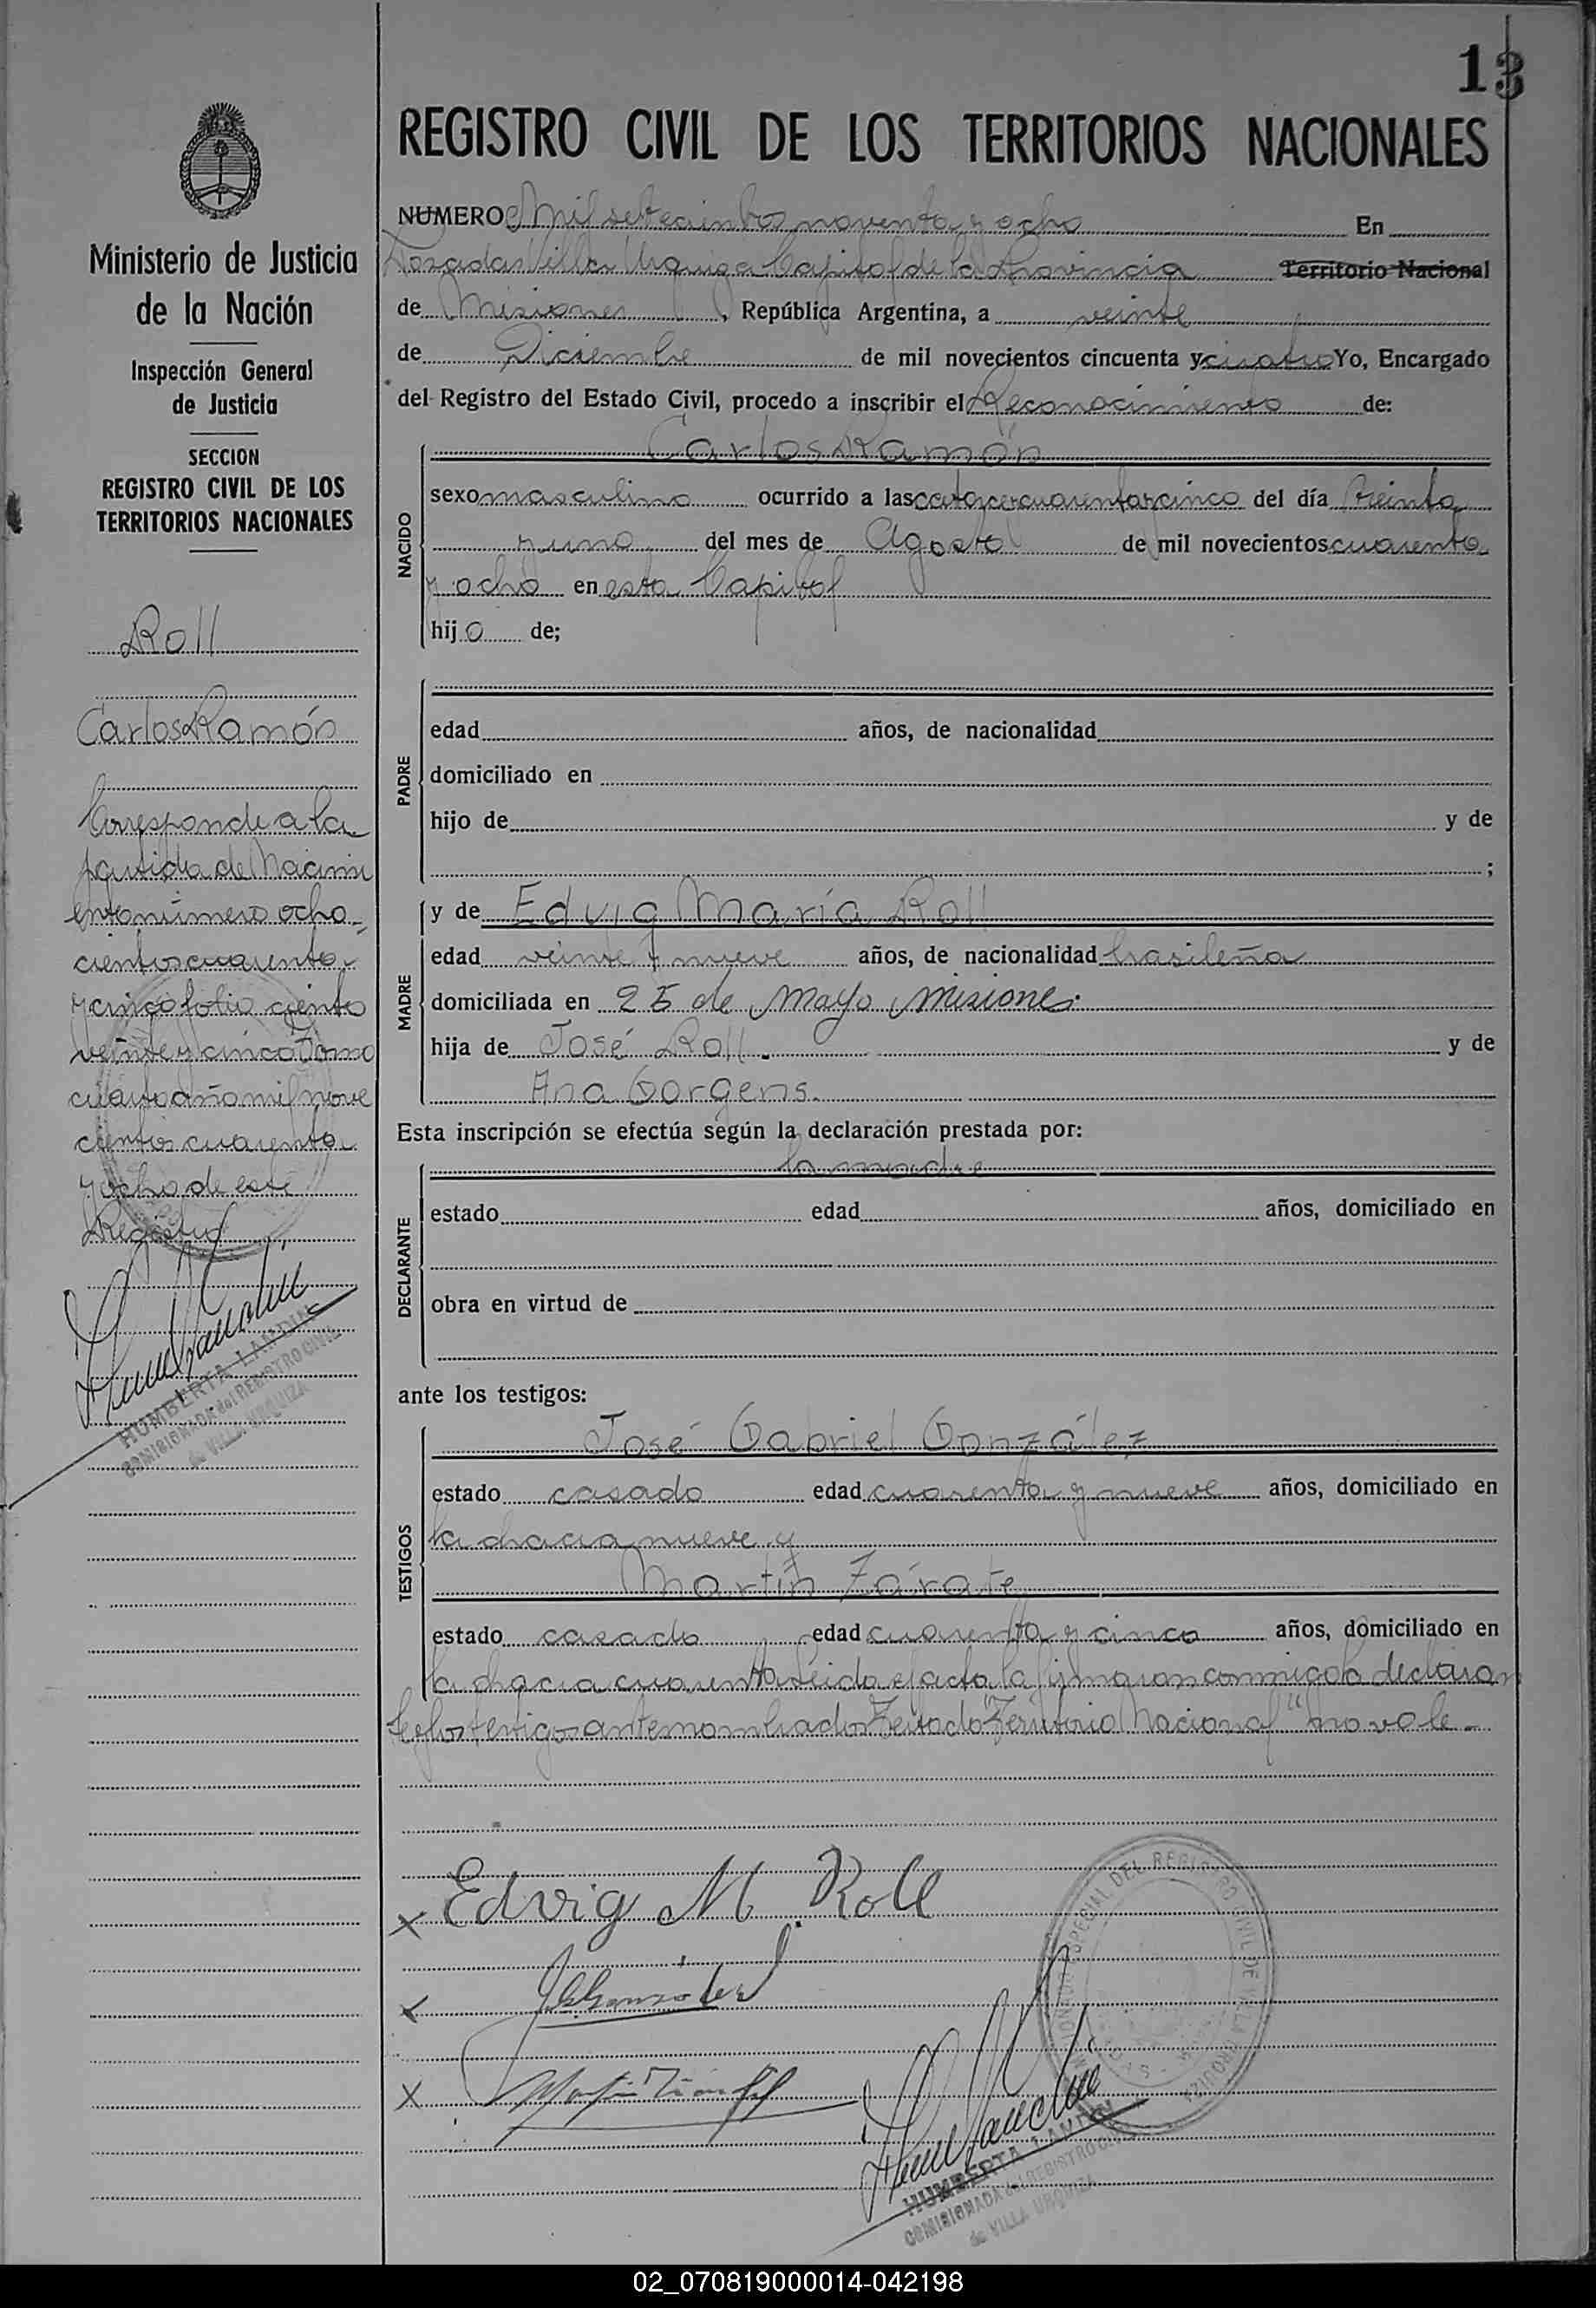 13
REGISTRO CIVIL DE LOS TERRITORIOS NACIONALES
Ministerio de Justicia
de la Nación
Inspección General
de Justicia
SECCION
REGISTRO CIVIL DE LOS
TERRITORIOS NACIONALES
Roll
Carlos Ramón
Corresponde a la
partida de Nacimi
ento número ocho
cientos cuarenta
y cinco folio ciento
veinte y cinco Tomo
cuarto año mil nove
cientos cuarenta
y ocho de este
Registro
HUMBERTA LANDIN
COMISIONADA del REGISTRO CIVIL
de VILLA URQUIZA
NUMERO Mil setecientos noventa y ocho En
Posadas Villa Urquiza Capital de la Provincia Territorio Nacional
de Misiones, República Argentina, a veinte
de Diciembre de mil novecientos cincuenta y cuatro Yo, Encargado
del Registro del Estado Civil, procedo a inscribir el Reconocimiento de:
NACIDO
Carlos Ramón
sexo masculino ocurrido a las catorce cuarenta y cinco del día treinta
y uno del mes de Agosto de mil novecientos cuarenta
y ocho en esta Capital
hijo de;
PADRE
edad años, de nacionalidad
domiciliado en
hijo de y de
;
MADRE
y de Edvig María Roll
edad veinte y nueve años, de nacionalidad brasileña
domiciliada en 25 de Mayo Misiones.
hija de José Roll. y de
Ana Gorgens.
Esta inscripción se efectúa según la declaración prestada por:
DECLARANTE
la madre
estado edad años, domiciliado en
obra en virtud de
ante los testigos:
TESTIGOS
José Gabriel González
estado casado edad cuarenta y nueve años, domiciliado en
la chacra nueve y
Martín Zárate
estado casado edad cuarenta y cinco años, domiciliado en
la chacra cuarenta leida el acta la firmaron conmigo la declaran
te y los testigos antenombrados Testado "Territorio Nacional" no vale.-
x Edvig M. Roll
x JGGonzález
x Martín Zárate
COMISIONADA ESPECIAL DEL REGISTRO CIVIL DE VILLA URQUIZA
HUMBERTA LANDIN
COMISIONADA del REGISTRO CIVIL
de VILLA URQUIZA
02_070819000014-042198